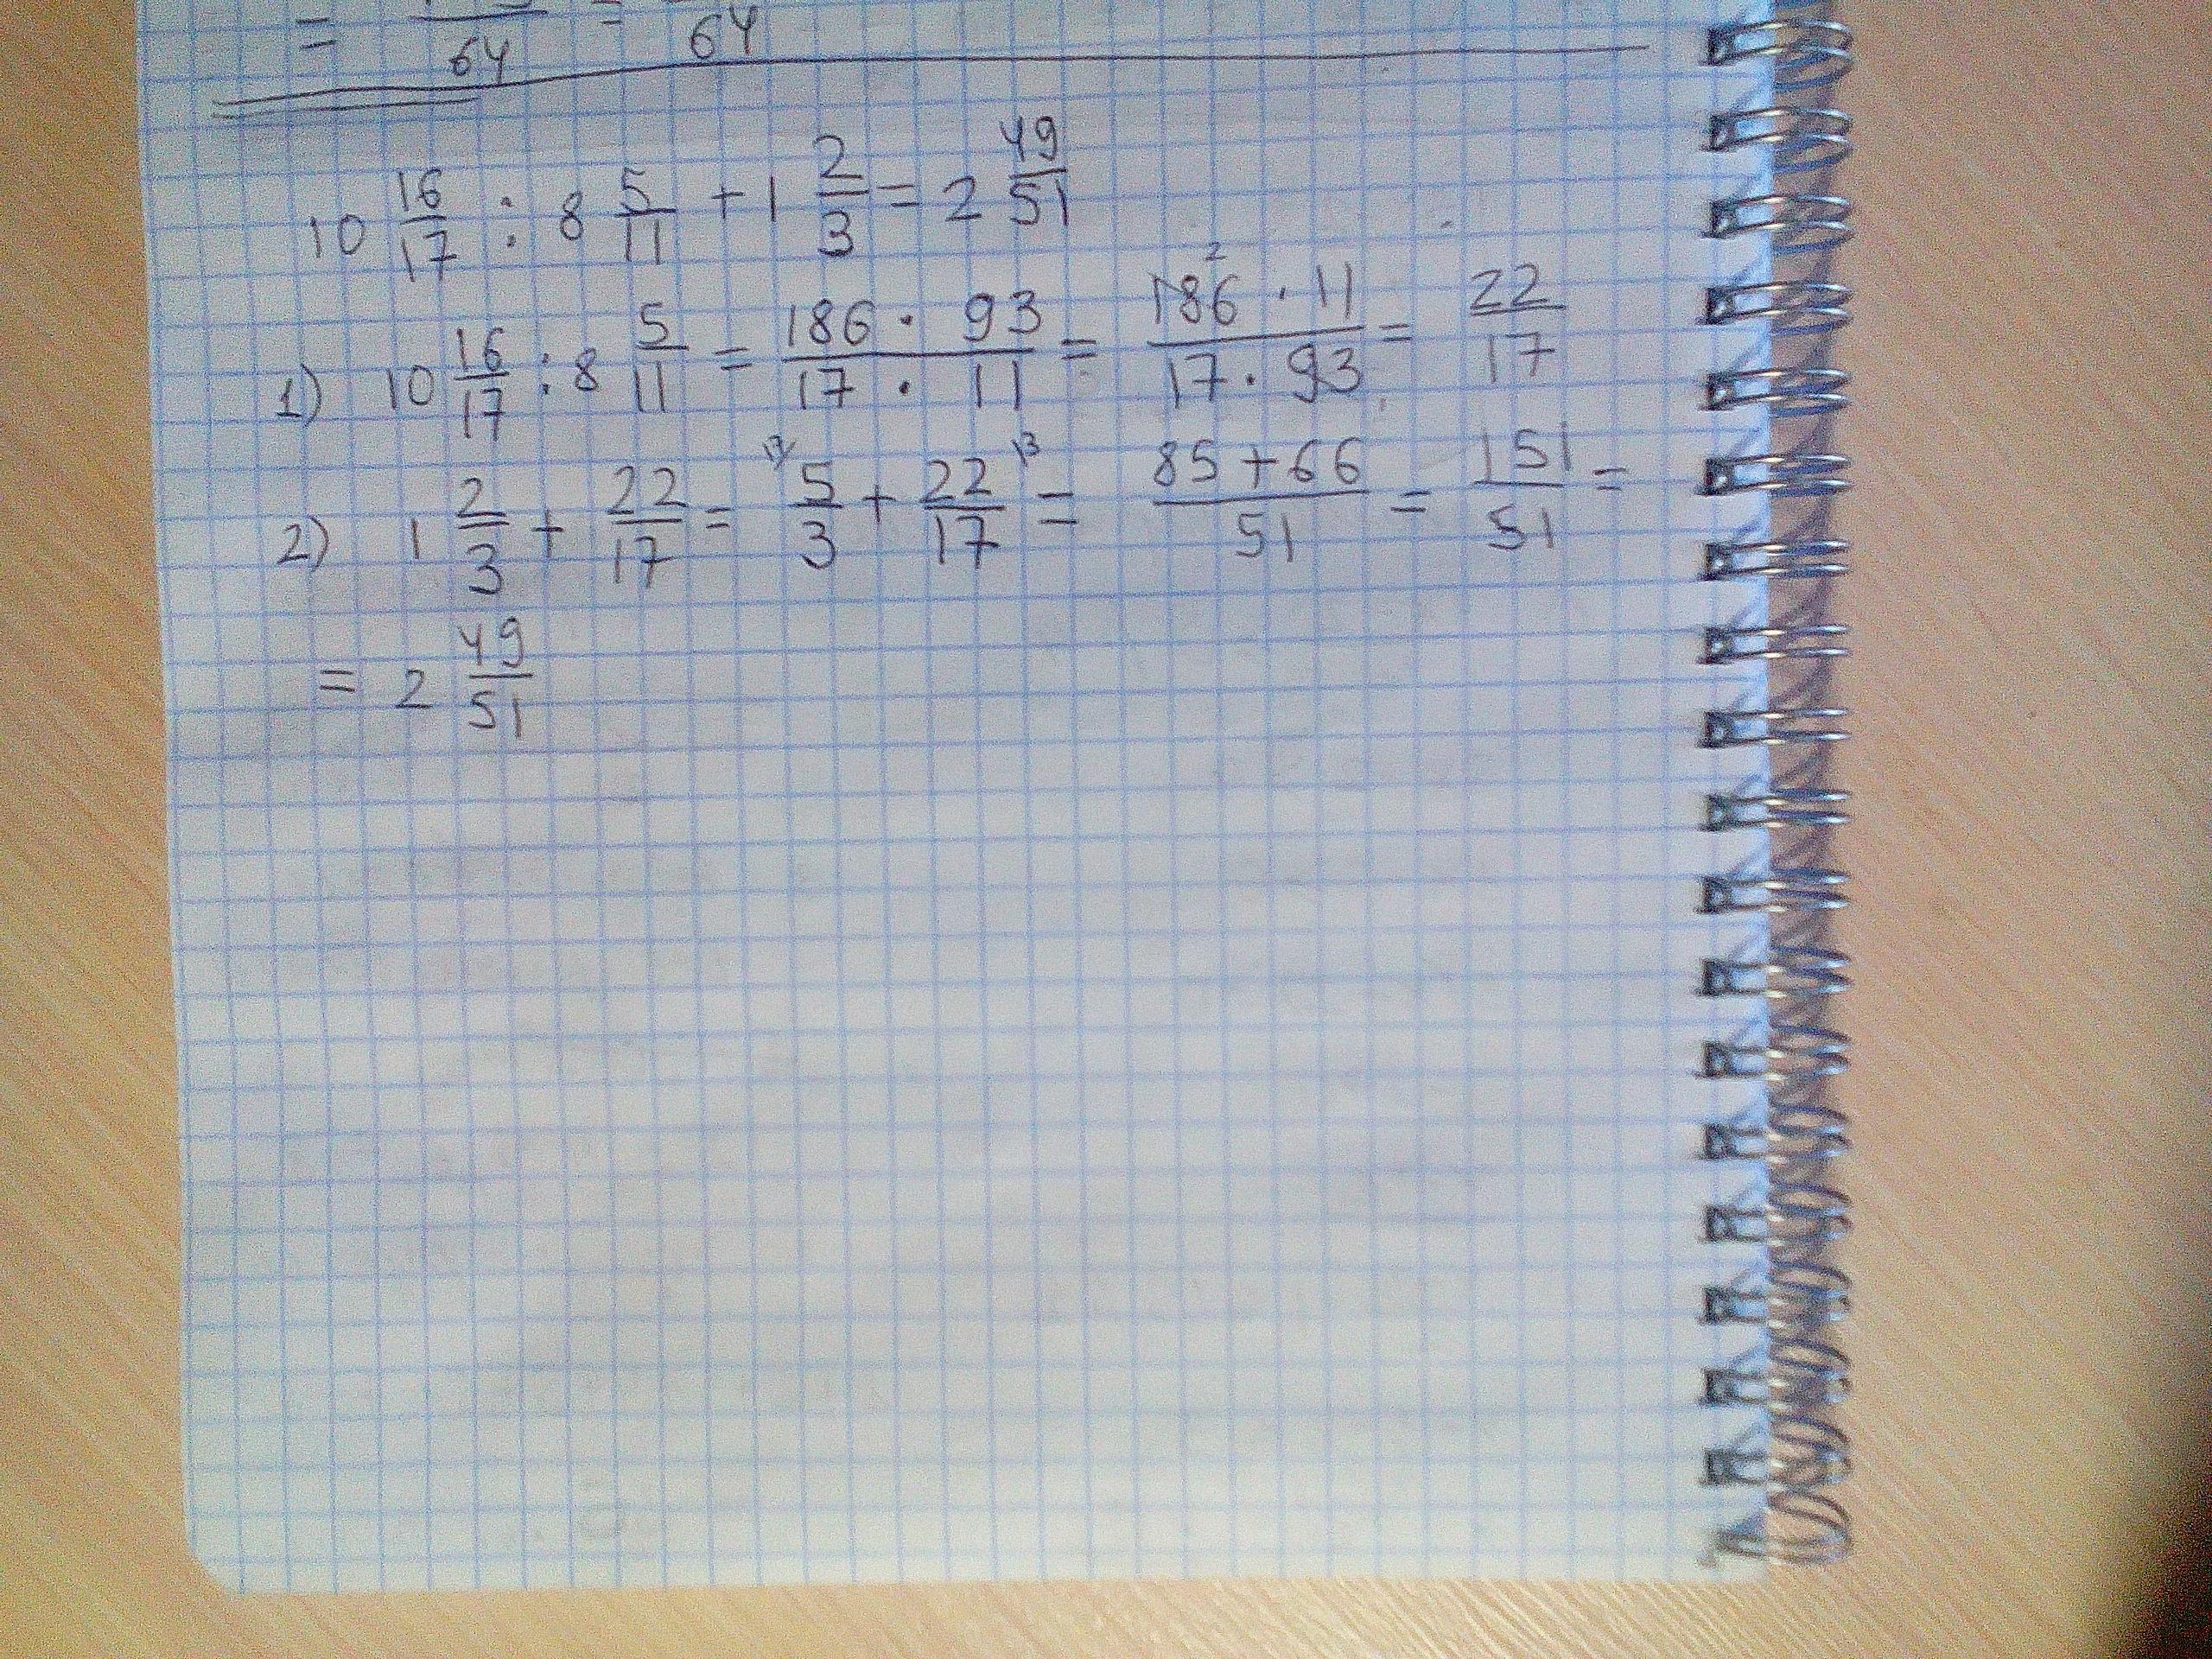 = /64 = /64
10 16/17 : 8 5/11 + 1 2/3 = 2 49/51
1) 10 16/17 : 8 5/11 = 186 · 93/17 · 11 = 186² · 11/17 · 93 = 22/17
2) 1 2/3 + 22/17 = 17/ 5/3 + 22/17 \3 = 85+66/51 = 151/51 =
= 2 49/51